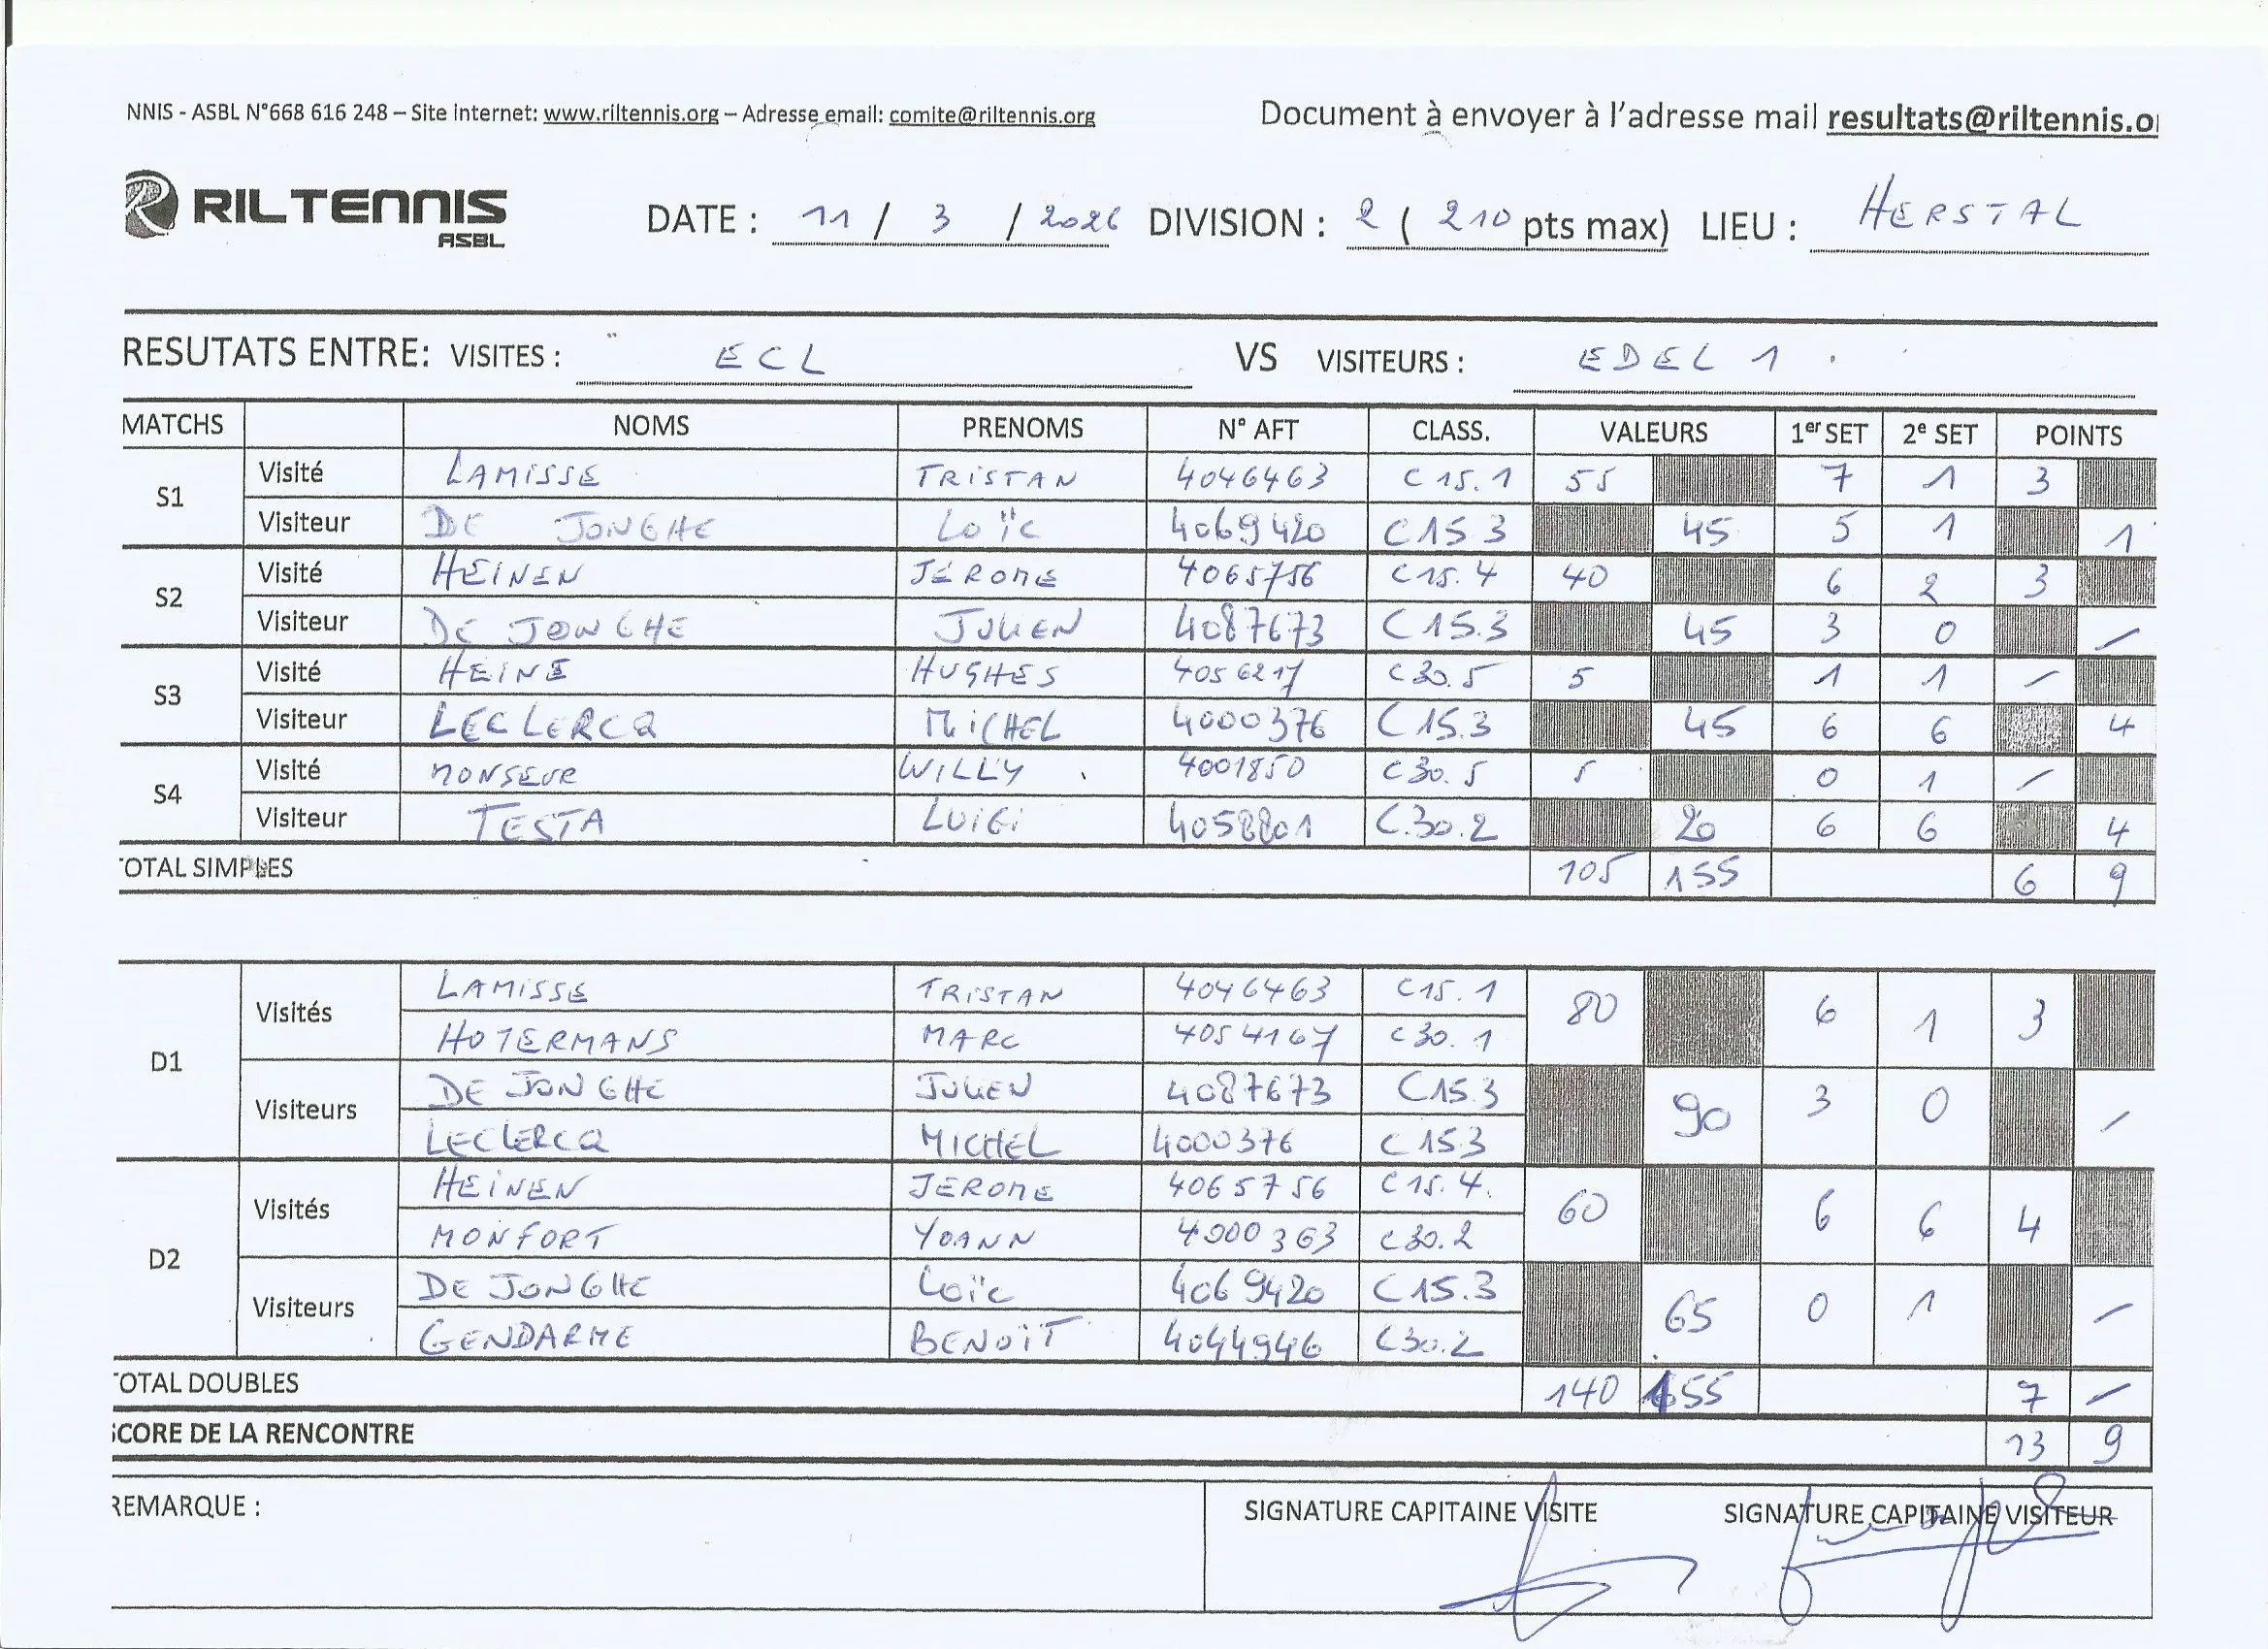 NNIS - ASBL N°668 616 248 – Site internet: www.riltennis.org – Adresse email: comite@riltennis.org
Document à envoyer à l'adresse mail resultats@riltennis.o
RILTENNIS ASBL
DATE : 11 / 3 / 2026 DIVISION : 2 ( 210 pts max) LIEU : HERSTAL
RESUTATS ENTRE: VISITES : ECL VS VISITEURS : EDEL 1
MATCHS NOMS PRENOMS N° AFT CLASS. VALEURS 1er SET 2e SET POINTS
S1
Visité LAMISSE TRISTAN 4046463 C15.1 55 7 1 3
Visiteur DE JONGHE LOÏC 4069420 C15.3 45 5 1 1
S2
Visité HEINEN JÉROME 4065756 C15.4 40 6 2 3
Visiteur DE JONGHE JULIEN 4087673 C15.3 45 3 0 /
S3
Visité HEINE HUGHES 4056217 C30.5 5 1 1 /
Visiteur LECLERCQ MICHEL 4000376 C15.3 45 6 6 4
S4
Visité MONSEUR WILLY 4001850 C30.5 5 0 1 /
Visiteur TESTA LUIGI 4058801 C.30.2 20 6 6 4
OTAL SIMPLES 105 155 6 9
D1
Visités LAMISSE TRISTAN 4046463 C15.1 80 6 1 3
HOTERMANS MARC 4054167 C30.1
Visiteurs DE JONGHE JULIEN 4087673 C15.3 90 3 0 /
LECLERCQ MICHEL 4000376 C15.3
D2
Visités HEINEN JEROME 4065756 C15.4. 60 6 6 4
MONFORT YOANN 4000363 C30.2
Visiteurs DE JONGHE Loïc 4069420 C15.3 65 0 1 /
GENDARME BENOÎT 4044946 C30.2
OTAL DOUBLES 140 155 7 /
SCORE DE LA RENCONTRE 13 9
REMARQUE :
SIGNATURE CAPITAINE VISITE SIGNATURE CAPITAINE VISITEUR